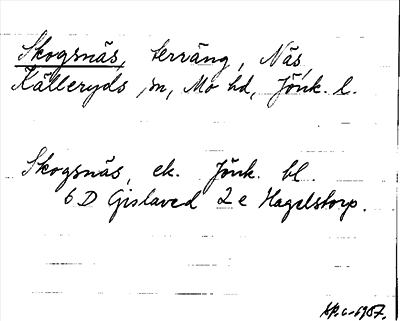 Skogsnäs, terräng, Näs,
Källeryds sn, Mo hd, Jönk. l.
Skogsnäs, ek. Jönk. bl.
6 D Gislaved 2 e Hagelstorp.